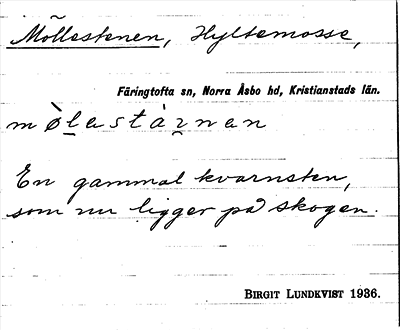 Möllestenen, Hyltemosse,
Färingtofta sn, Norra Åsbo hd, Kristianstads län.
mø̀lestávnan
En gammal kvarnsten,
som nu ligger på skogen.
Birgit Lundkvist 1936.